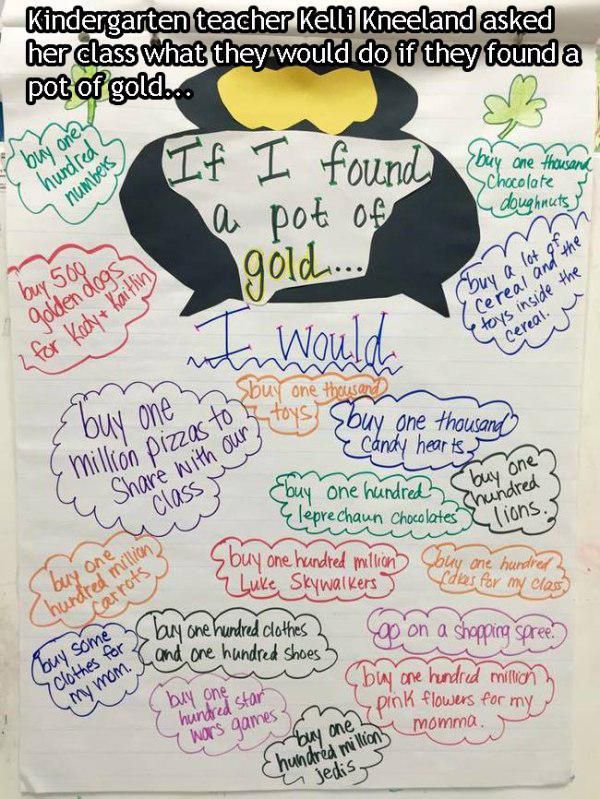 Kindergarten teacher Kelli Kneeland asked
her class what they would do if they found a
pot of gold...
If I found
a pot of
gold...
I would
buy one
hundred
numbers
buy one thousand
chocolate
doughnuts
buy 500
golden dogs
for Kody + Kaitlin
buy a lot of
cereal and the
toys inside the
cereal.
buy one thousand
toys
buy one
million pizzas to
share with our
class
buy one thousand
candy hearts
buy one hundred
leprechaun chocolates
buy one
hundred
lions.
buy one
hundred million
carrots
buy one hundred million
Luke Skywalkers
buy one hundred
cakes for my class
buy some
clothes for
my mom.
buy one hundred clothes
and one hundred shoes
go on a shopping spree.
buy one
hundred star
wars games
buy one hundred million
pink flowers for my
momma.
buy one
hundred million
jedis